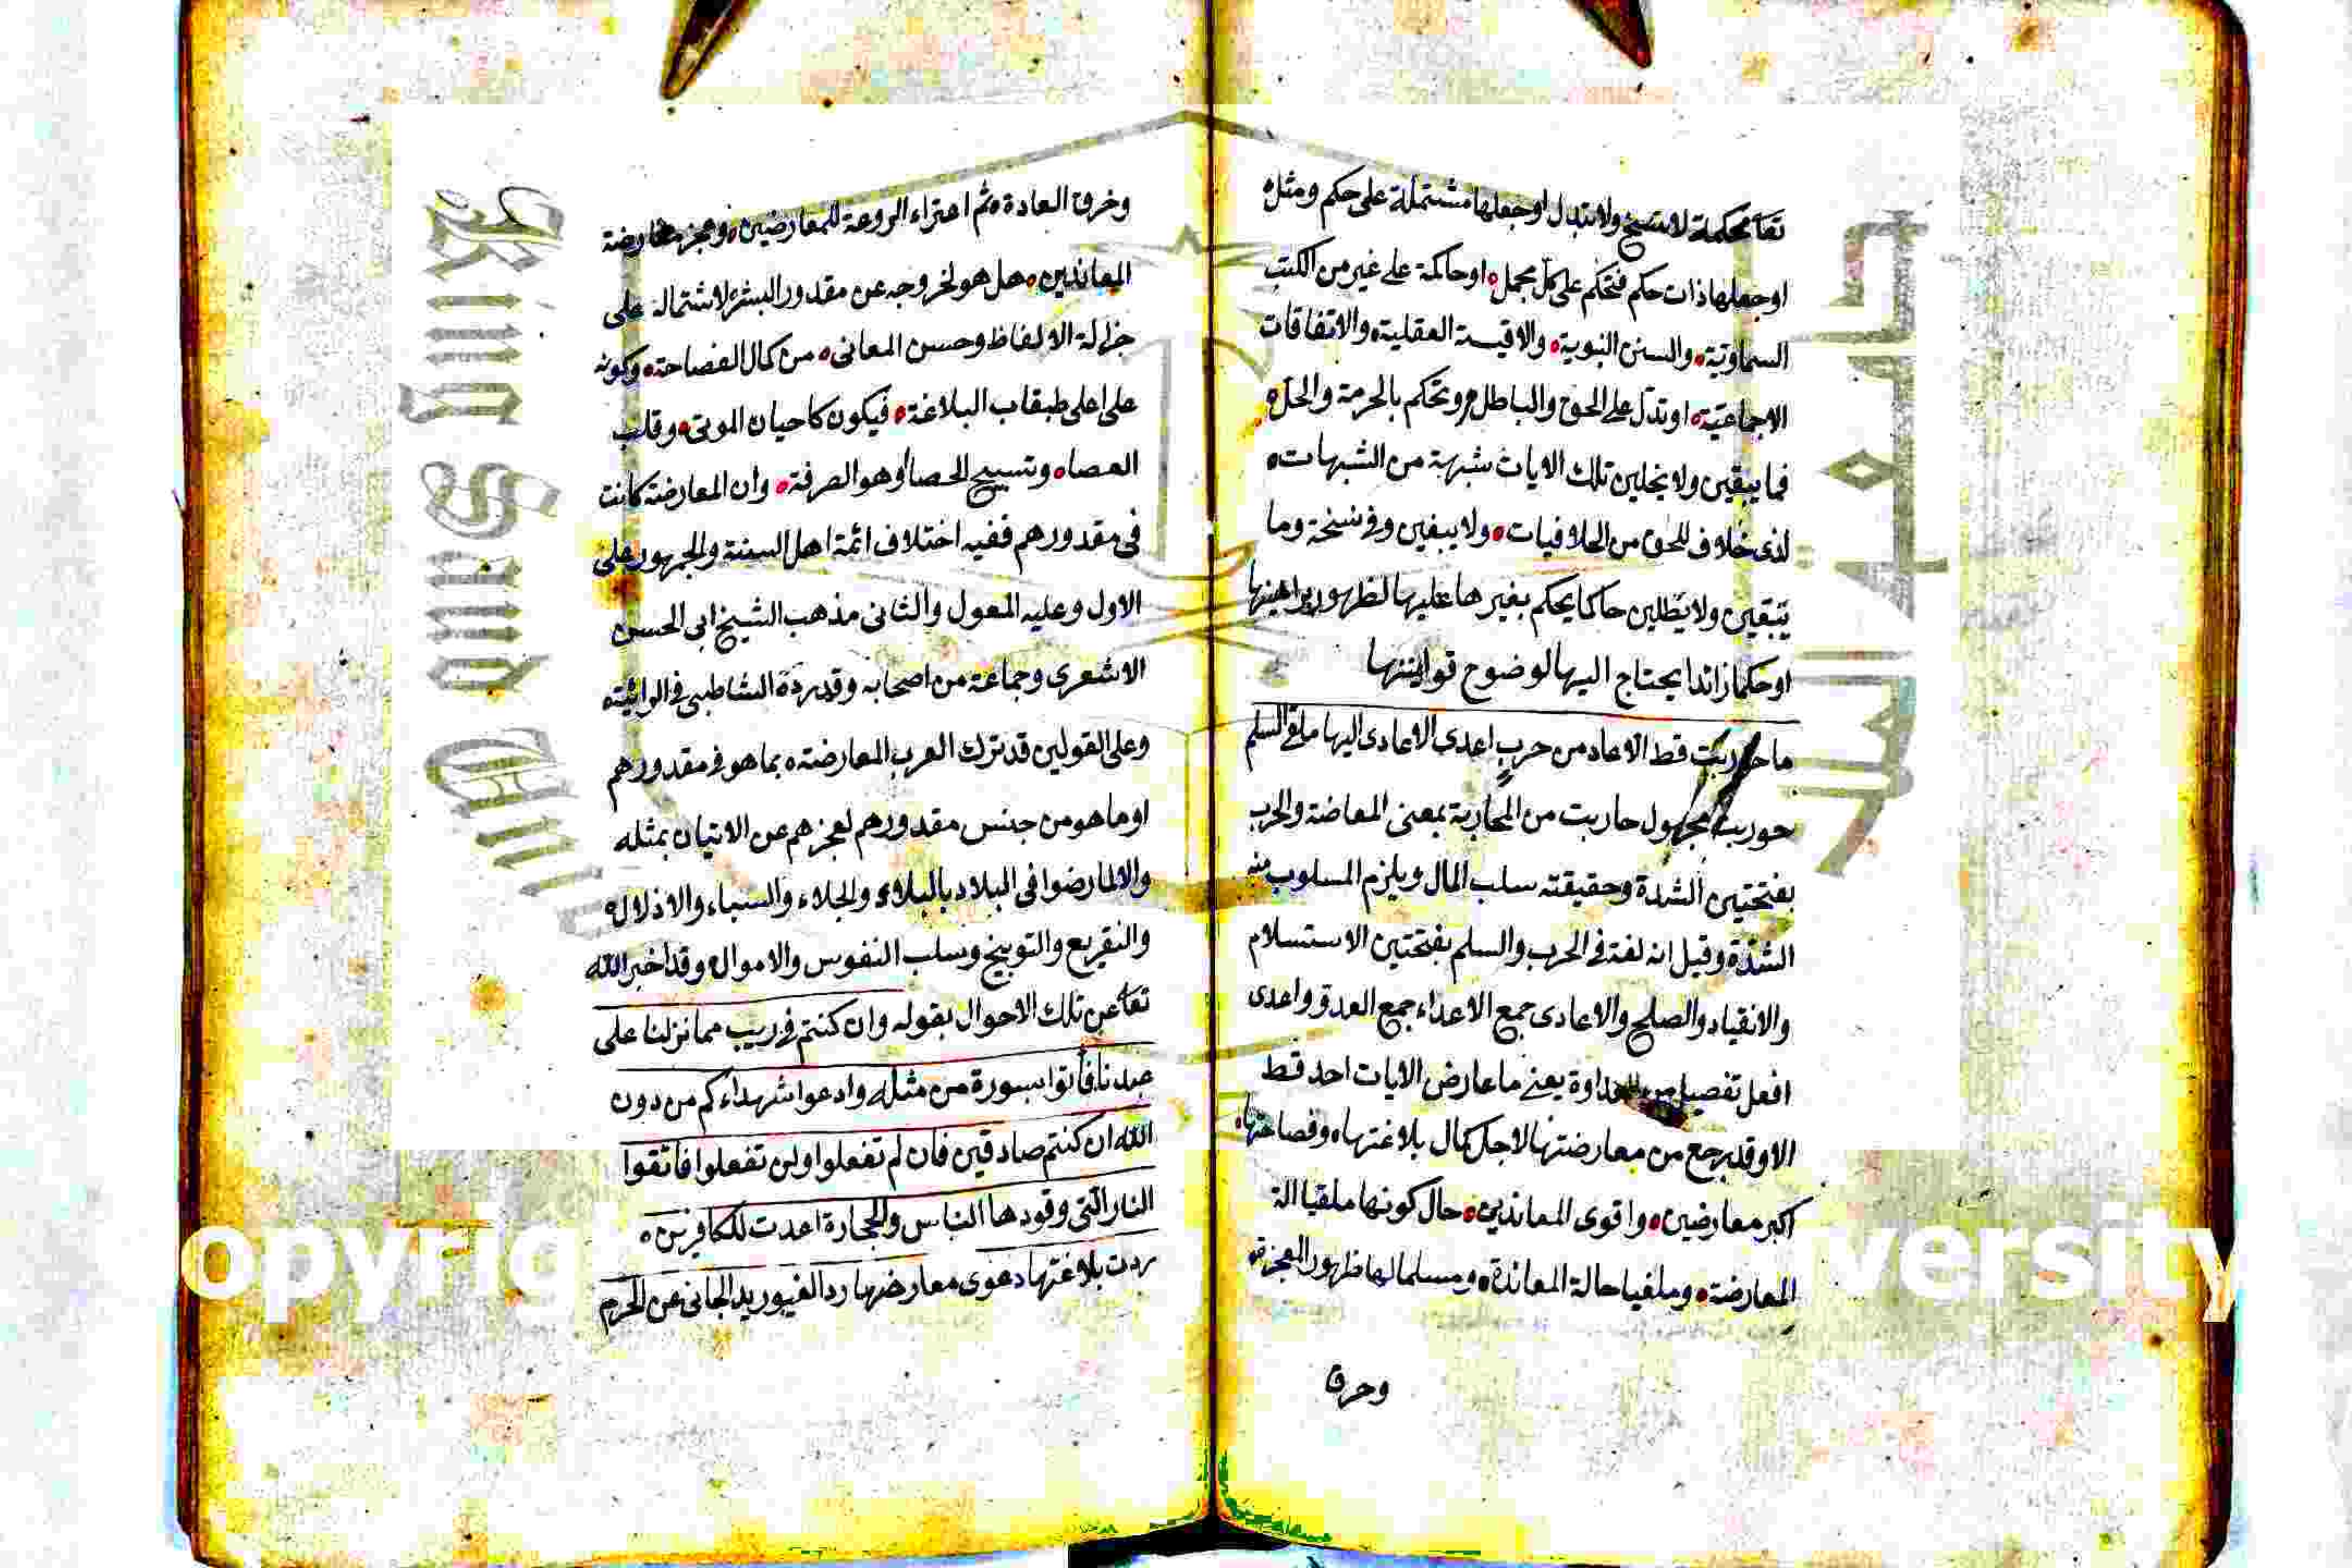 تعا محكمة لا تنسخ ولا تتبدل او جعلها مشتملة على حكم ومثله
او جعلها ذات حكم فتحكم على كل مجمل او حاكمة على غير من الكتب
السماوية والسنن النبوية والاقيسة العقلية والاتفاقات
الاجماعية او تدل على الحق والباطل وتحكم بالحرمة والحل
فما يبقين ولا يخلين تلك الايات شبهة من الشبهات
لذى خلاف للحق من الخلافيات ولا يبغين وفى نسخة وما
تبقين ولا يطلبن حاكما يحكم بغيرها عليها لظهور براهينها
او حكما زائدا يحتاج اليها لوضوح قوانينها
ما حوربت قط الا عاد من حرب اعدى الاعادى اليها ملقى السلم
حوربت مجهول حاربت من المحاربة بمعنى المعاضة والحرب
بفتحتين الشدة وحقيقته سلب المال ويلزم المسلوب منه
الشدة وقيل انه لغة فى الحرب والسلم بفتحتين الاستسلام
والانقياد والصلح والاعادى جمع الاعداء جمع العدو واعدى
افعل تفصيل من العداوة يعنى ما عارض الايات احد قط
الا وقد رجع من معارضتها لاجل كمال بلاغتها وفصاحتها
اكبر معارضين واقوى المعاندين حال كونها ملقيا الة
المعارضة وملغيا حالة المعاندة ومسلما لها ظهور المعجزة
وخرق
وخرق العادة ثم اعتراء الروعة للمعارضين وعجز معارضة
المعاندين هل هو لخروجه عن مقدور البشر لاشتماله على
جزالة الالفاظ وحسن المعانى من كمال الفصاحة وكونه
على اعلى طبقاب البلاغة فيكون كاحيان الموتى وقلب
العصا وتسبيح الحصا او هو الصرفة وان المعارضة كانت
فى مقدورهم ففيه اختلاف ائمة اهل السنة والجمهور على
الاول وعليه المعول والثانى مذهب الشيخ ابى الحسن
الاشعرى وجماعة من اصحابه وقد رده الشاطبى فى الرائية
وعلى القولين قد ترك العرب المعارضة بما هو فى مقدورهم
او ما هو من جنس مقدورهم لعجزهم عن الاتيان بمثله
والا لما رضوا فى البلاد بالبلاء والجلاء والسباء والاذلال
والتقريع والتوبيخ وسلب النفوس والاموال وقد اخبر الله
تعا عن تلك الاحوال بقوله وان كنتم فى ريب مما نزلنا على
عبدنا فأتوا بسورة من مثله وادعوا شهداءكم من دون
الله ان كنتم صادقين فان لم تفعلوا ولن تفعلوا فاتقوا
النار التى وقودها الناس والحجارة اعدت للكافرين
ردت بلاغتها دعوى معارضها رد الغيور يد الجانى عن الحرم